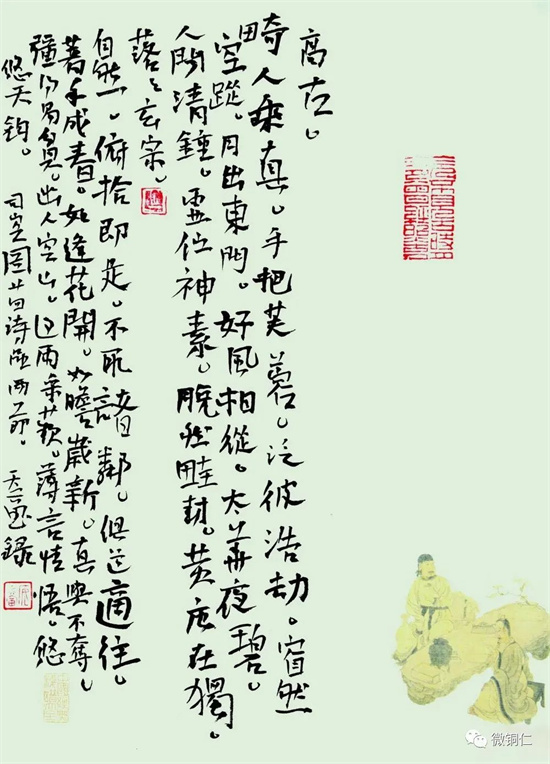 高古。
畸人乘真。手把芙蓉。泛彼浩劫。窅然
空蹤。月出東門。好風相從。太華夜碧。
人聞清鍾。虛佇神素。脱然畦封。黄唐在獨。
落々玄宗。
自然。俯拾即是。不取諸鄰。俱道適往。
著手成春。如逢花開。如瞻歲新。真與不奪。
彊得易貧。幽人空山。過雨采蘋。薄言情悟。悠
悠天鈞。司空图廿四诗品两節。録
微铜仁